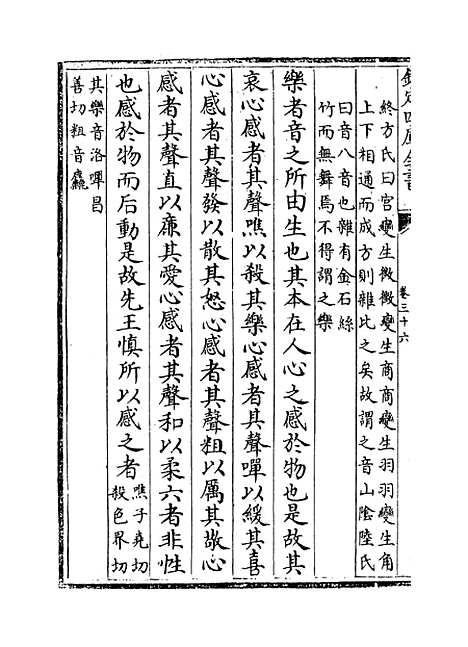 欽定四庫全書
卷三十六
終方氏曰宮變生徵徵變生商商變生羽羽變生角
上下相通而成方則雜比之矣故謂之音山陰陸氏
曰音八音也雜有金石絲
竹而無舞焉不得謂之樂
樂者音之所由生也其本在人心之感於物也是故其
哀心感者其聲噍以殺其樂心感者其聲嘽以緩其喜
心感者其聲發以散其怒心感者其聲粗以厲其敬心
感者其聲直以廉其愛心感者其聲和以柔六者非性
也感於物而后動是故先王慎所以感之者噍子堯切
殺色界切
其樂音洛嘽昌
善切粗音麤